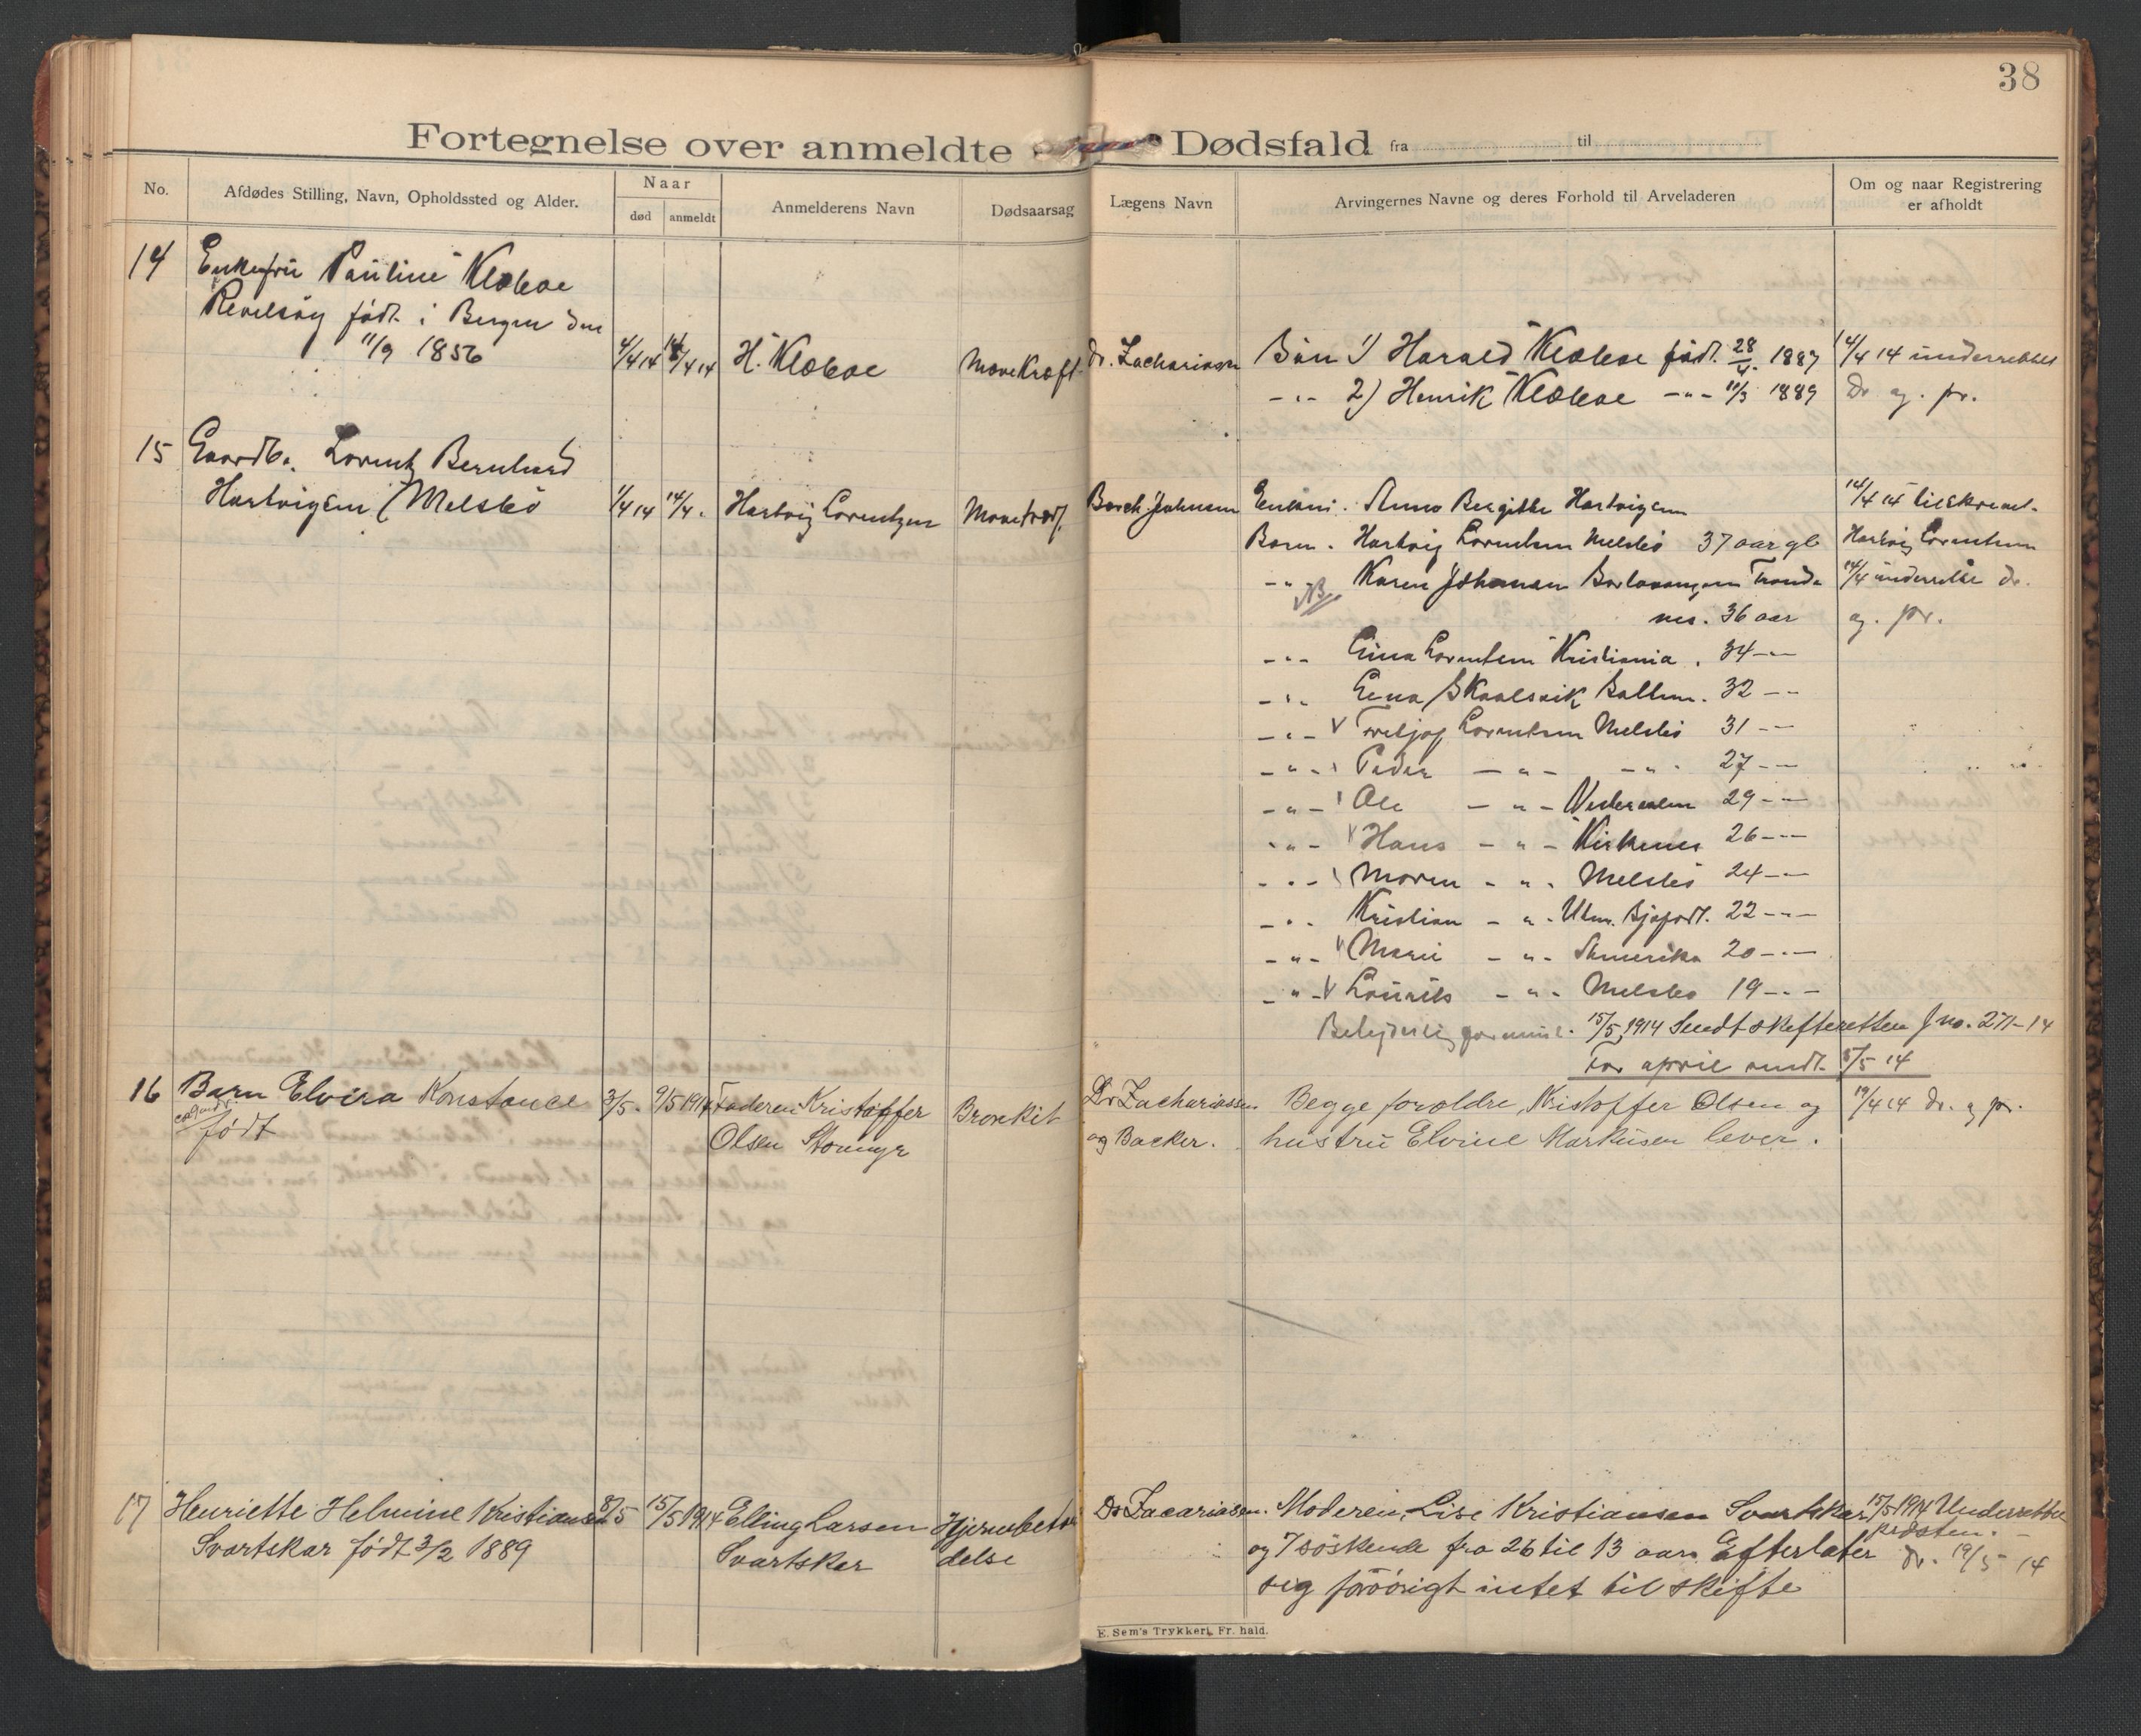 38
Fortegnelse over anmeldte Dødsfald fra til
No.
Afdødes Stilling, Navn, Opholdssted og Alder.
Naar
død
anmeldt
Anmelderens Navn
Dødsaarsag
Lægens Navn
Arvingernes Navne og deres Forhold til Arveladeren
Om og naar Registrering
er afholdt
14 Enkefru Pauline Klæboe
født i Bergen den
11/9 1856 4/4 14 14/4 14 H. Klæboe Mavekræft. Dr. Zachariassen Barn 1) Harald Klæboe født 28/4. 1887 14/4 14 underrettet
-"- 2) Henrik Klæboe -"- 11/3 1889 Dr og. pr.
15 Gaardb. Lorentz Bernhard
Hartvigsen Melsbø 1/4 14 14/4. Hartvig Lorentzen Mavekræft. Borch Johnsen Enken: Anna Bergitte Hartvigsen 14/4 14 tilskrevet.
Barn. Hartvig Lorentsen Melsbø 37 aar gl Hartvig Lorentsen
-"- NB Karen Johansen Tronde 14/4 underrettet dr.
nes. 36 aar og. pr.
-"- Lorentsen Kristiania. 34 -"-
-"- Skaalsvik Ballsn. 32 -"-
-"- V Lorentsen Melsbø 31 -"-
-"- Peder -"- -"- 27 -"-
-"- Ole -"- Vesteraalen 29 -"-
-"- V Hans -"- Kirkenes 26 -"-
-"- Moren -"- Melsbø 24 -"-
-"- Kristian -"- 22 -"-
-"- V Marie -"- Amerika 20 -"-
-"- V Laurits -"- Melsbø 19 -"-
15/5 1914 Sendt skifteretten J no. 271-14
For april sendt 5/5 14
16 Barn Elvira Konstance 3/5. 9/5 1914 Faderen Kristoffer Bronkit Dr Zachariassen Begge forældre, Kristoffer Olsen og 19/4 14 dr. og pr.
født Olsen Stormyr og Backer. hustru Elvine Markusen lever.
17 Henriette Helmine Kristiansen 8/5 15/5 1914 Elling Larsen Hjernebetæn Dr Zacariasen. Moderen, Lise Kristiansen Svartskar 15/5 1914 Underrettet
Svartskar født 3/2 1889 Svartskar delse og 7 söskende fra 26 til 13 aar. Efterlater presten.
dr. 19/5 - 14
sig forövrigt intet til skifte
E. Sem's Trykkeri, Fr. hald.